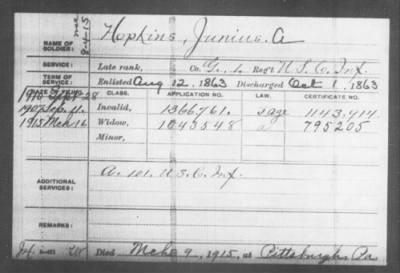 Hopkins, Junius. A
NAME OF SOLDIER:
SERVICE: Late rank, Co. G, 1. Reg't U.S.C. Inf.
TERM OF SERVICE: Enlisted Aug 12, 1863 Discharged Oct 1, 1863
DATE OF FILING. CLASS. APPLICATION NO. LAW. CERTIFICATE NO.
1907 Invalid, 1366,761. 1143,414
1915 Mch 16 Widow, 1043548 795205
Minor,
ADDITIONAL SERVICES: A. 101. U.S.C. Inf.
REMARKS:
Died Mch 9, 1915, at Pittsburgh Pa